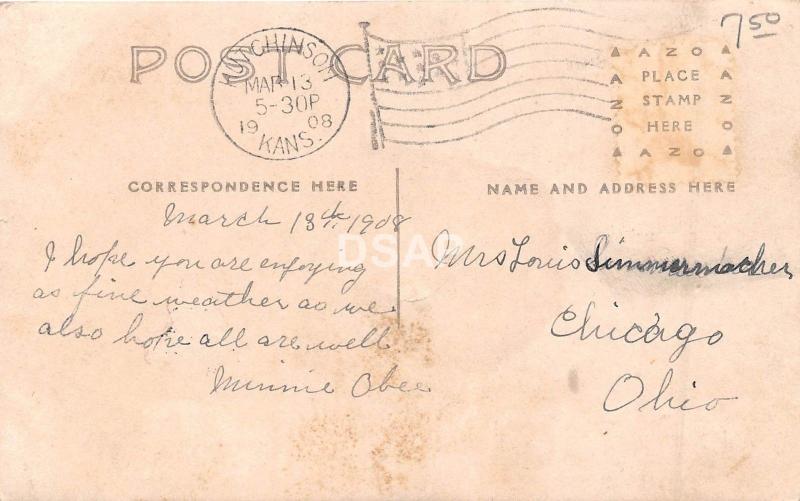 POST CARD
7.50
HUTCHINSON
MAR 13
5-30P
1908
KANS.
AZO
PLACE
STAMP
HERE
AZO
AZO
AZO
CORRESPONDENCE HERE
NAME AND ADDRESS HERE
March 13th, 1908
I hope you are enjoying
as fine weather as we
also hope all are well
Minnie Obee
DSAP
Mrs Louis Simmermacher,
Chicago
Ohio